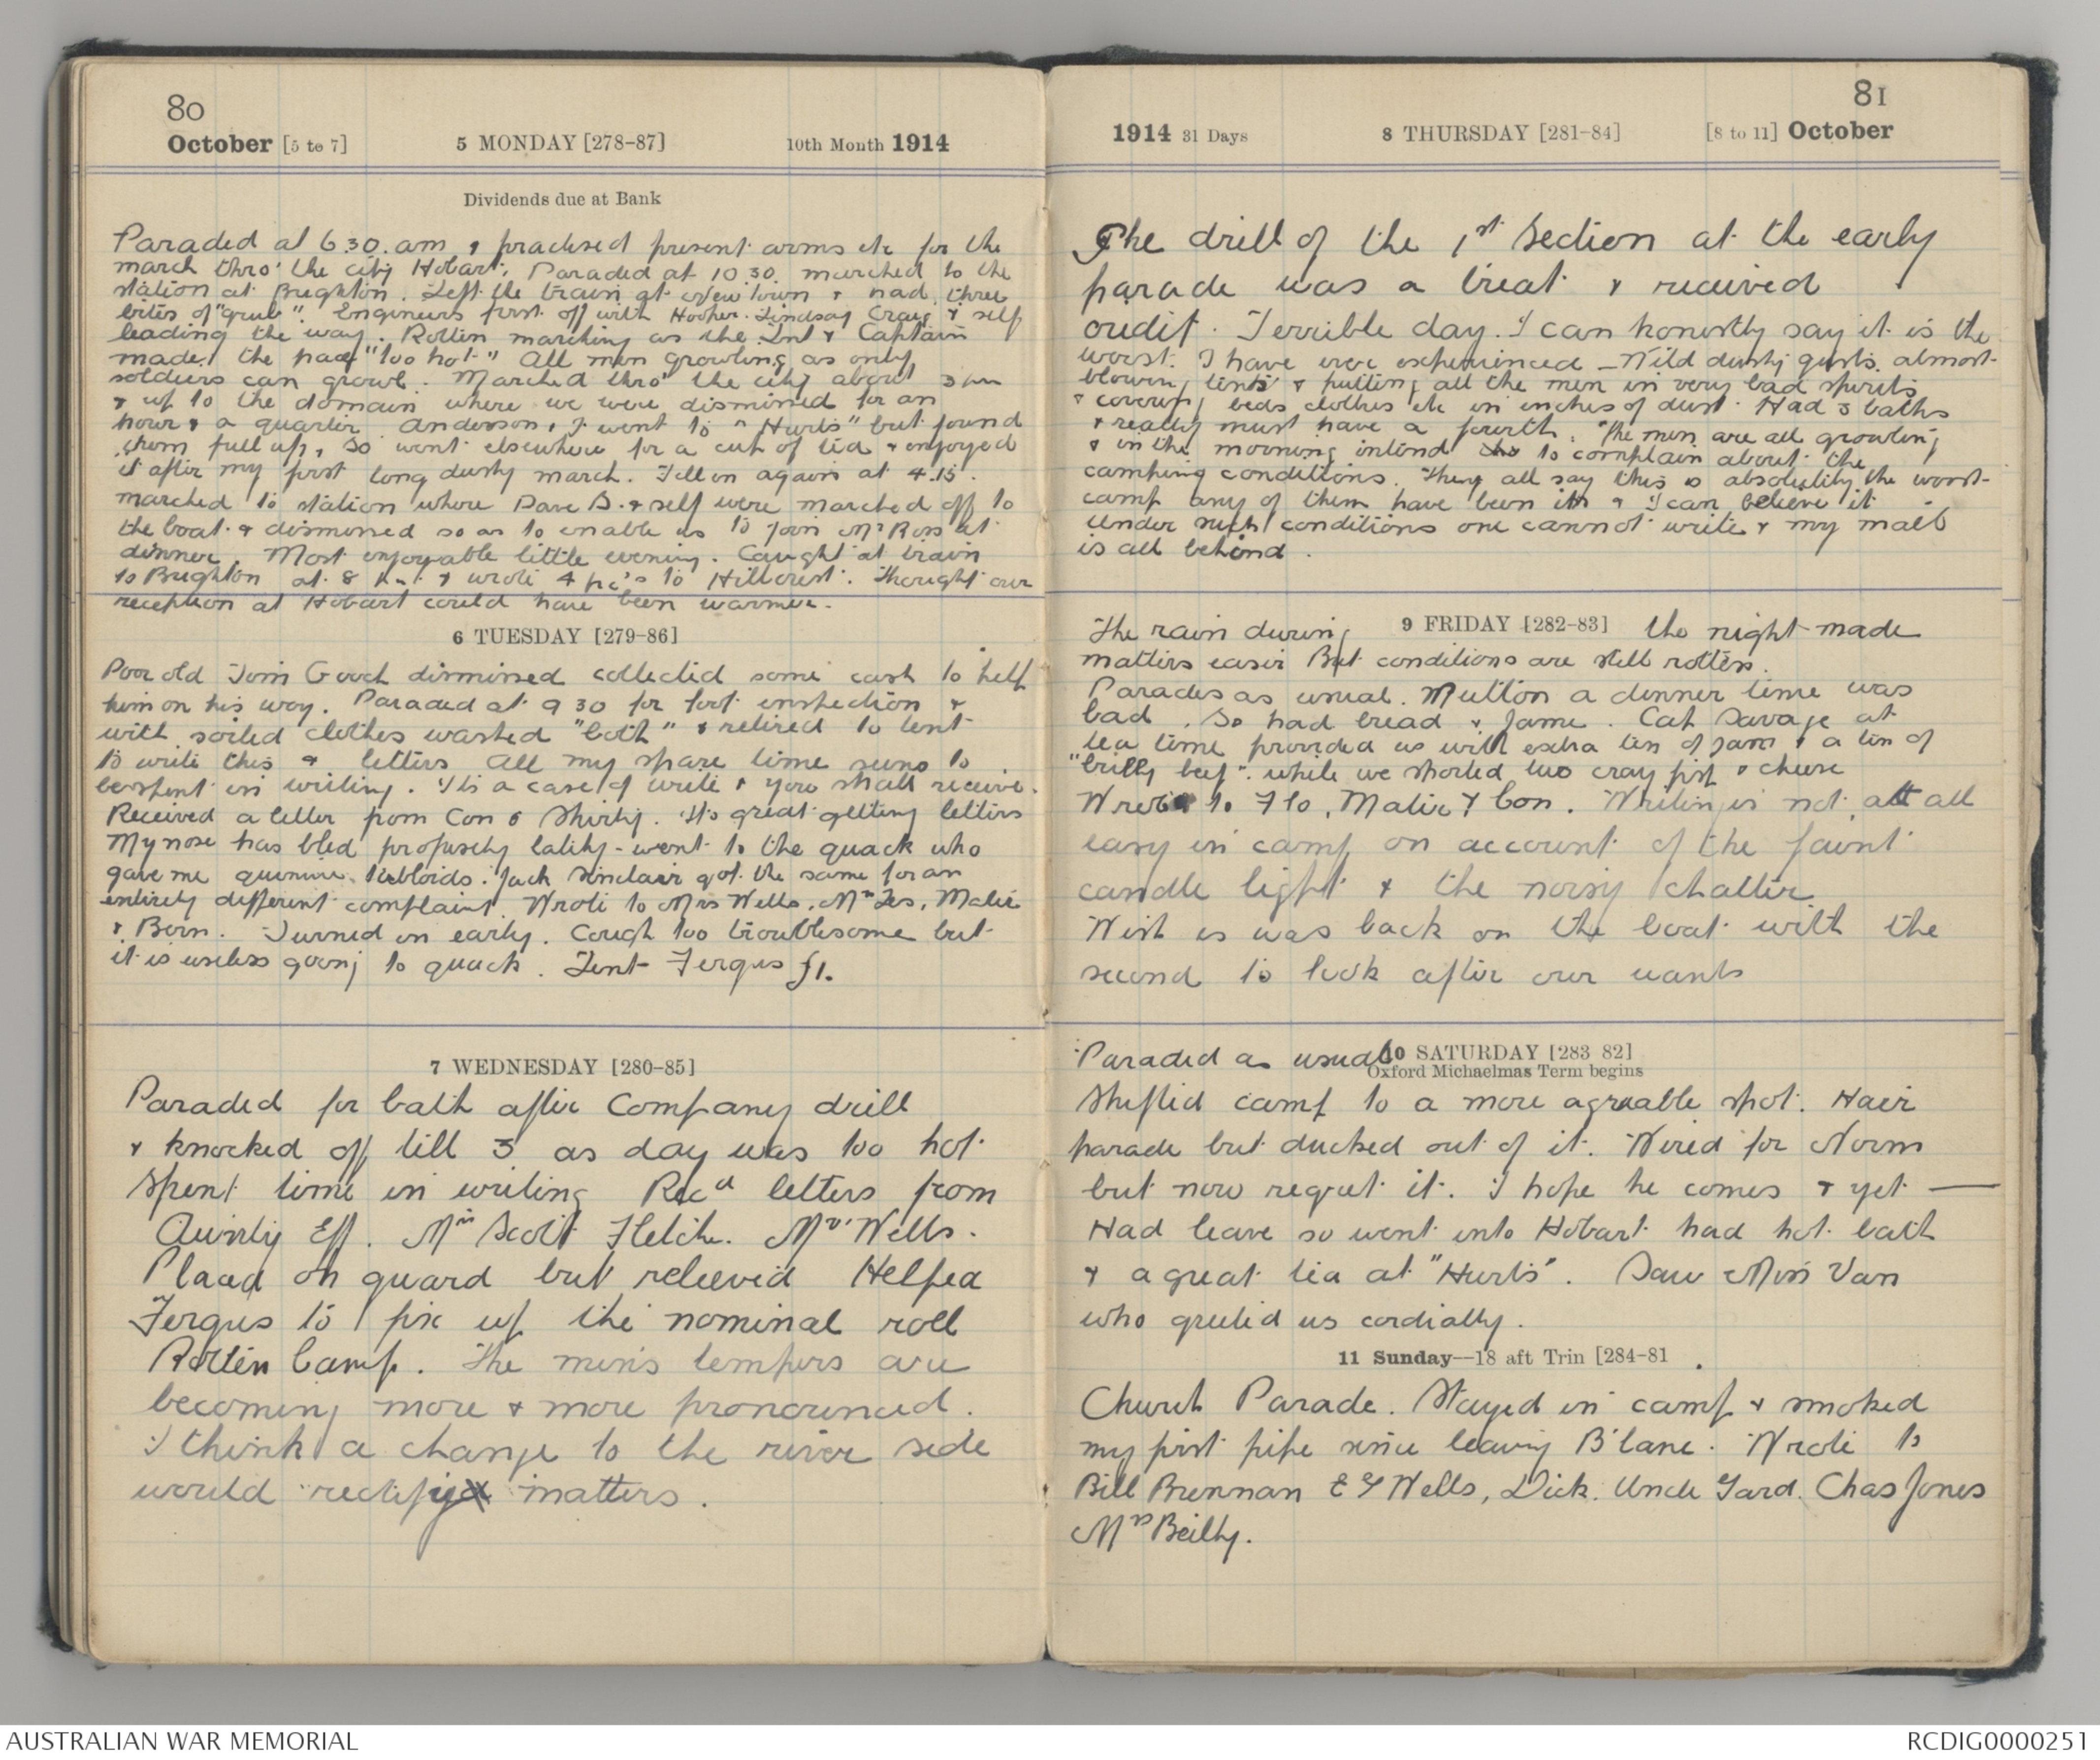 80
October [5 to 7] 5 MONDAY [278-87] 10th Month 1914
Dividends due at Bank
Paraded at 6.30. am & practised present arms etc for the
march thro' the city Hobart. Paraded at 10 30. marched to the
station at Brighton. Left the train at New Town & had three
bites of "grub". Engineers first off with Hooper. Lindsay Craig & self
leading the way. Rotten marching as the Lnt & Captain
made the pace "too hot" All men growling as only
soldiers can growl. Marched thro' the city about 3 pm
& up to the domain where we were dismissed for an
hour & a quarter Anderson & I went to "Hurts" but found
them full up, so went elsewhere for a cup of tea & enjoyed
it after my first long dusty march. Fell in again at 4.15.
marched to station where Dave D. & self were marched off to
the boat & dismissed so as to enable us to join Mr Ross at
dinner. Most enjoyable little evening. Caught at train
to Brighton at 8 p.m. & wrote 4 pc's to Hillcrest. Thought our
reception at Hobart could have been warmer.
6 TUESDAY [279-86]
Poor old Tom Gooch dismissed collected some cash to help
him on his way. Paraded at 9 30 for foot inspection &
with soiled clothes washed "both" & retired to tent
to write this & letters All my spare time seems to
be spent in writing. It is a case of write & you shall receive.
Received a letter from Con & Shirley. It's great getting letters
My nose has bled profusely lately - went to the quack who
gave me quinine tabloids. Jack Sinclair got the same for an
entirely different complaint. Wrote to Mrs Wells, Mrs Les, Matie
& Bern. Turned in early. Cough too troublesome but
it is useless going to quack. Lent Fergus £1.
7 WEDNESDAY [280-85]
Paraded for bath after Company drill
& knocked off till 3 as day was too hot
Spent time in writing Recd letters from
Aunty Eff. Mrs Scott Fletche. Mrs Wells.
Placed on guard but releeved Helped
Fergus to fix up the nominal roll
Rotten Camp. The men's tempers are
becoming more & more pronounced.
I think a change to the river side
would rectify matters.
81
1914 31 Days 8 THURSDAY [281-84] [8 to 11] October
The drill of the 1st Section at the early
parade was a treat & received
credit. Terrible day. I can honestly say it is the
worst I have ever experienced - Wild dusty gusts almost
blowing tents & putting all the men in very bad spirits
& covering beds clothes etc in inches of dust. Had 3 baths
& really must have a fourth. The men are all growling
& in the morning intend to complain about the
camping conditions. They all say this is absolutely the worst
camp any of them have been in & I can believe it
Under such conditions one cannot write & my mail
is all behind.
The rain during 9 FRIDAY [282-83] the night made
matters easier But conditions are still rotten.
Parades as usual. Mutton a dinner time was
bad. So had bread & jame. Cap Savage at
tea time provided us with extra tin of jam & a tin of
"bully beef". while we shorted two cray fish & cheese
Wrote to Flo, Matie & Con. Writing is not at all
easy in camp on account of the faint
candle light & the noisy chatter
Wish us was back on the boat with the
second to look after our wants
Paraded as usual 10 SATURDAY [283 82]
Oxford Michaelmas Term begins
Shifted camp to a more agreable spot. Hair
parade but ducked out of it. Wired for Norm
but now regret it. I hope he comes & yet —
Had leave so went into Hobart had hot bath
& a great tea at "Hurts". Saw Miss Van
who greeted us cordially.
11 Sunday—18 aft Trin [284-81
Church Parade. Stayed in camp & smoked
my first pipe since leaving B'bane. Wrote to
Bill Brennan E G Wells, Dick. Uncle Gard. Chas Jones
Mrs Beilby.
AUSTRALIAN WAR MEMORIAL RCDIG0000251